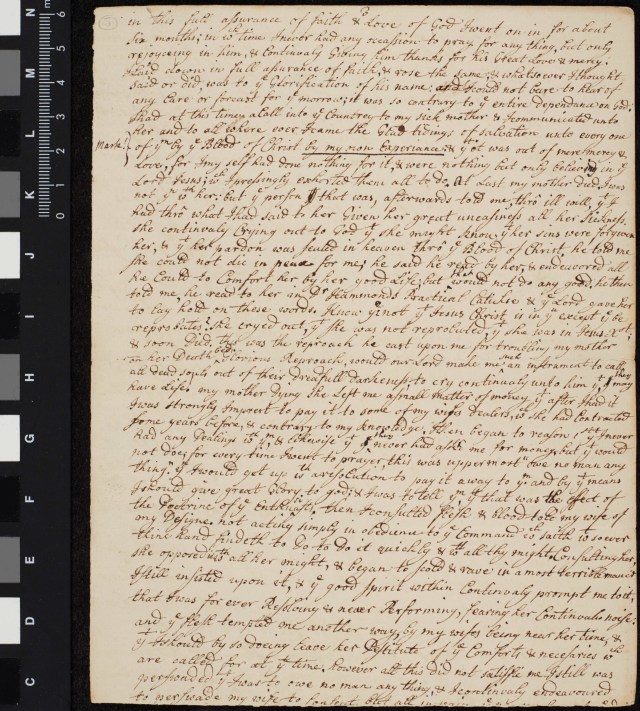 in this full assurance of faith & Love of God I went on in for about
six months; in wch time I never had any occassion to pray for any thing, but only
rejoyceing in him, & continualy Giveing him thanks for his Great Love & mercy.
I laid down in full assurance of faith, & rose the same; & whatsoever I thought
said or did, was to ye Glorification of his name; and I could not bare to hear of
any Care or forecast for ye morrow; it was so contrary to ye entire dependance on God.
I had at this time a call into ye Countrey to my sick mother & I communicated unto
her and to all where ever I came the Glad tidings of salvation unto every one
Mark. of ym by ye Blood of Christ by my own Experience; & yt it was out of meer mercy &
Love, for I my self had done nothing for it, & were nothing but only believed in ye
Lord Jesus; wch I pressingly exhorted them all to do. At Last my mother died, I was
not yn wth her: but ye person yt was, afterwards told me, thro' ill will, yt I
had thro' what I had said to her Given her great uneasiness all her sickness.
she continualy Crying out to God yt she might know yt her sins were forgiven
her, & yt her pardon was sealed in heaven thro' ye Blood of Christ, he told me
she could not die in peace for me; he said he read by her, & endeavoured all
he Could to Comfort her by her good Life; but that would not do any good, he then
told me he read to her in Dr Hammonds Practical Catechise & ye Lord gave her
to lay hold on these words. Know ye not yt Jesus Christ is in you except ye be
reprobates: she cryed out, yt she was not reprobated yt she was in Jesus Xst,
& soon Died, this was the reproach he cast upon me for troubling my mother
on her Death bed. Glorious Reproach, would our Lord make me such an instrument to call
all dead souls out of their Dreadfull Darkness, to cry continualy unto him yt they may
have Life; my mother Dying she Left me a small matter of money, yt after I had it
I was strongly Imprest to pay it to some of my wifes Dealers, wch she had Contracted
some years before, & contrary to my knowledge. I then began to reason yt I never
had any Dealings wth ym & likewise yt they never had ask'd me for money. but yt would
not do; for every time I went to prayer, this was uppermost owe no man any
thing. yt I would get up wth a resolution to pay it away to ym and by yt means
I should give great Glory to god; & I was to tell ym yt that was the effect of
the Doctrine of ye Enthusiasts, then I consulted flesh & blood told my wife of
my Designe, not acting simply in obedience to ye Command wch saith wtsoever
thine hand findeth to do, to do it quickly & wth all thy might. Consulting her,
she opposed wth all her might, & began to scold & rave in a most terrible manner
I still insisted upon it, & ye good Spirit within Continualy prompt me to it,
that I was for ever Resolving & never Performing, fearing her Continual noise:
and ye flesh tempted me another way, by my wifes being near her time, &
yt I should by so doing leave her Destitute of ye Comforts & necesaries wch
are called for at yt time, however all this did not satisfie me I still was
perswaded yt I was to owe no man any thing, & I continualy endeavoured
to perswade my wife to consent, but all in vain